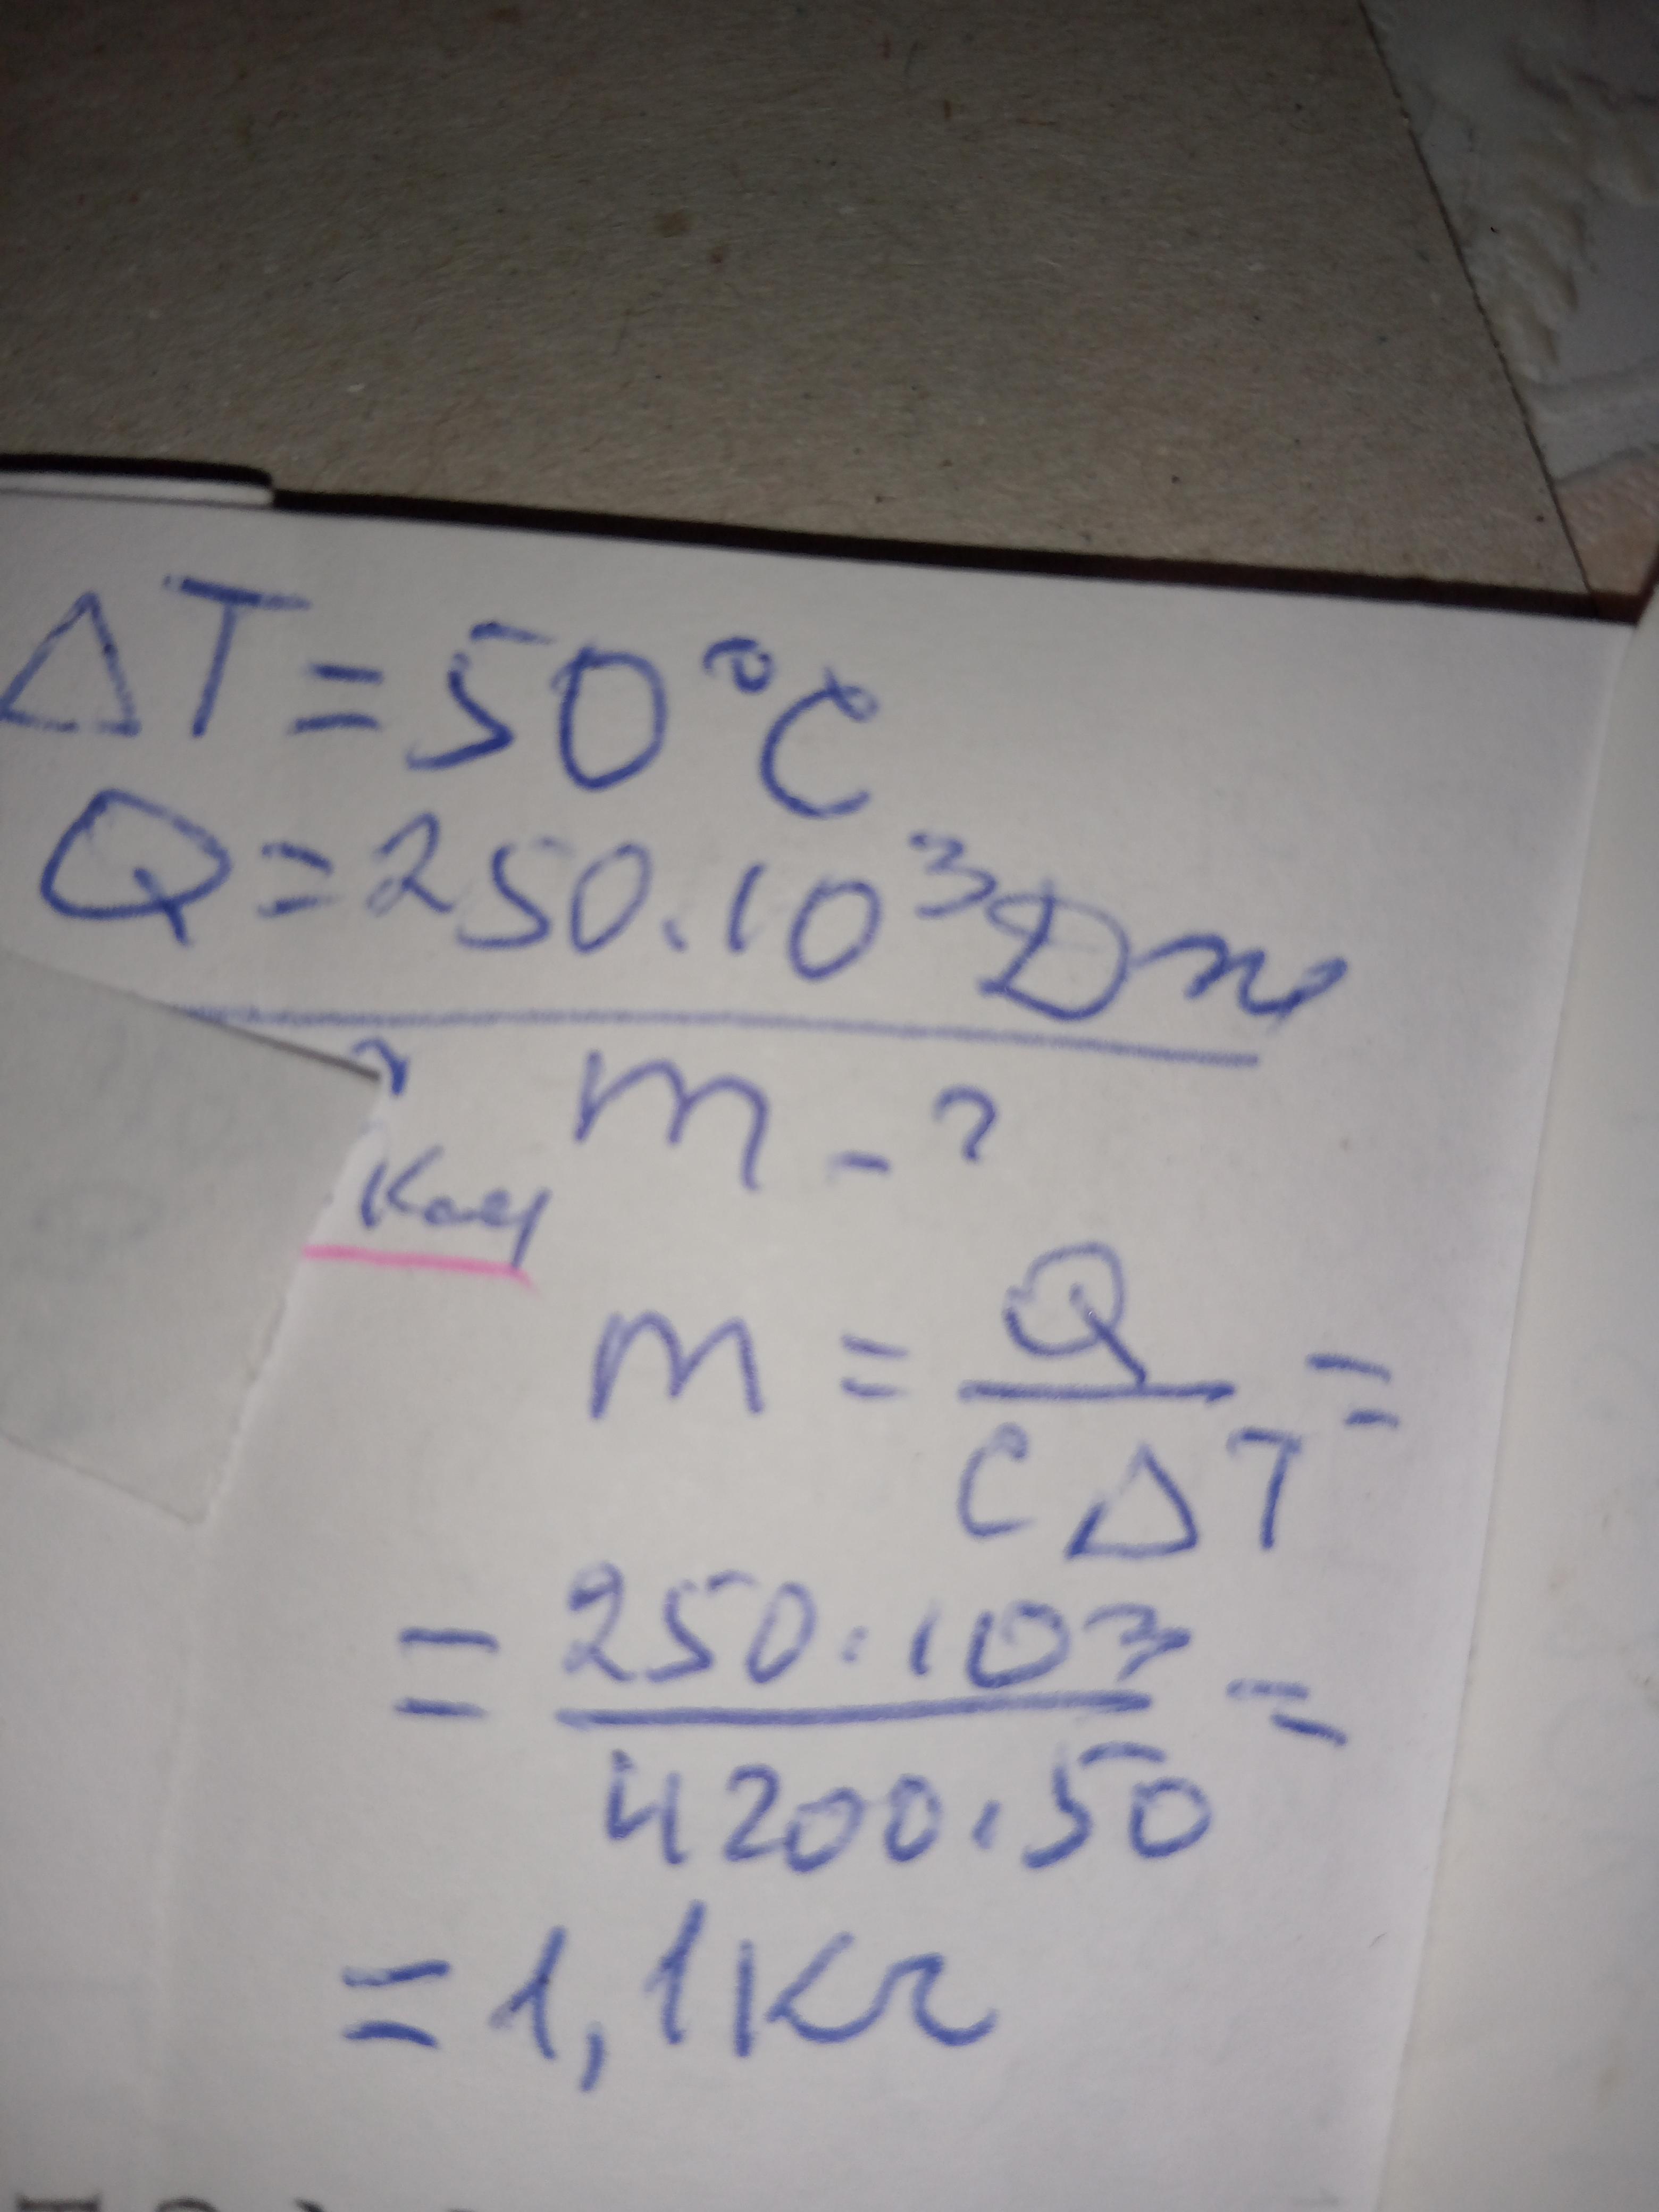 ΔT = 50°C
Q = 250.10³ Дж
m - ?
m = Q / C ΔT =
= 250.10³ / 4200.50 =
= 1,1 Кг